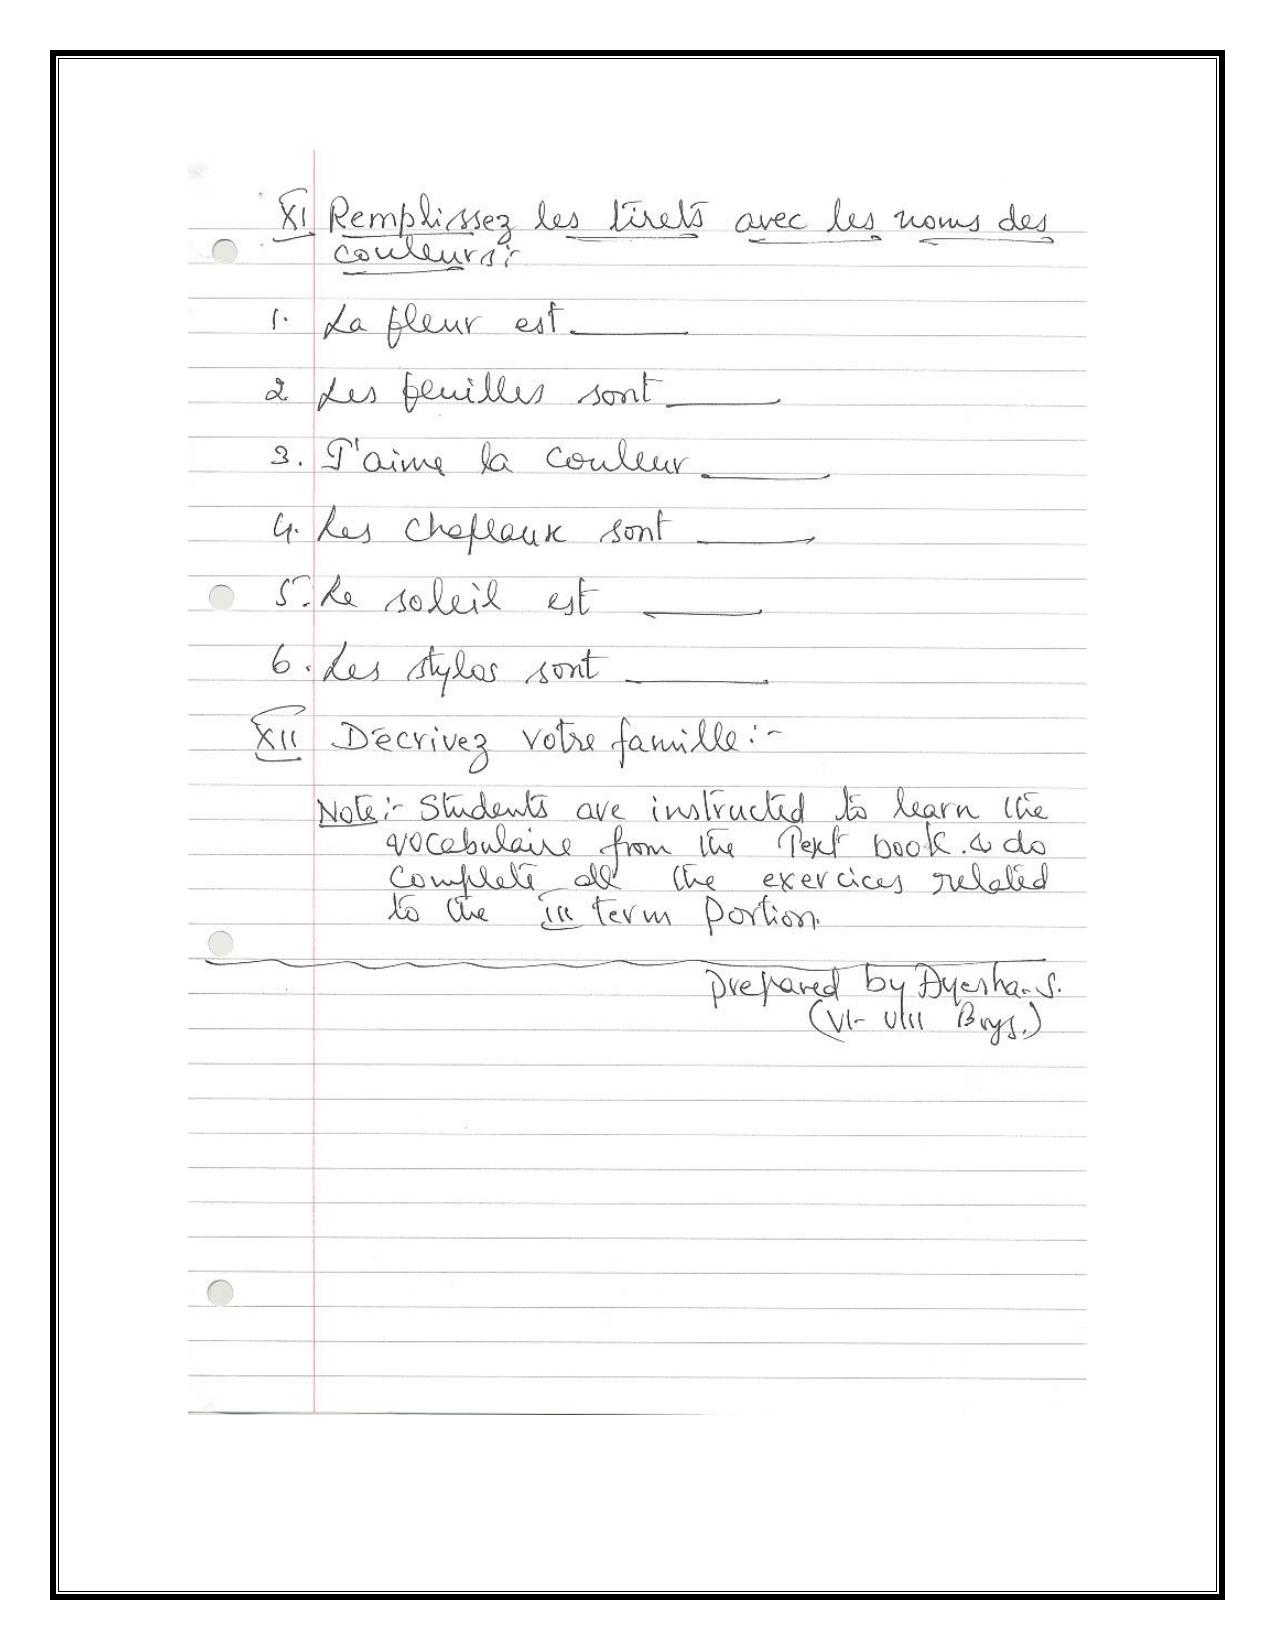 XI Remplissez les tirets avec les noms des
couleurs:-
1. La fleur est ______
2. Les feuilles sont ______
3. J'aime la couleur ______
4. Les chapeaux sont ______
5. Le soleil est ______
6. Les stylos sont ______
XII Décrivez votre famille:-
Note:- Students are instructed to learn the
vocabulaire from the Text book. & do
complete all the exercices related
to the III term portion.
prepared by Ayesha. S.
(VI- VIII Boys.)